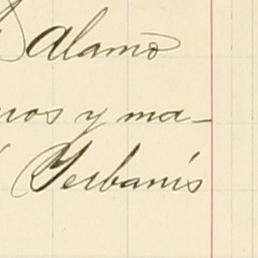 Alamo
nos y ma-
Yerbanis